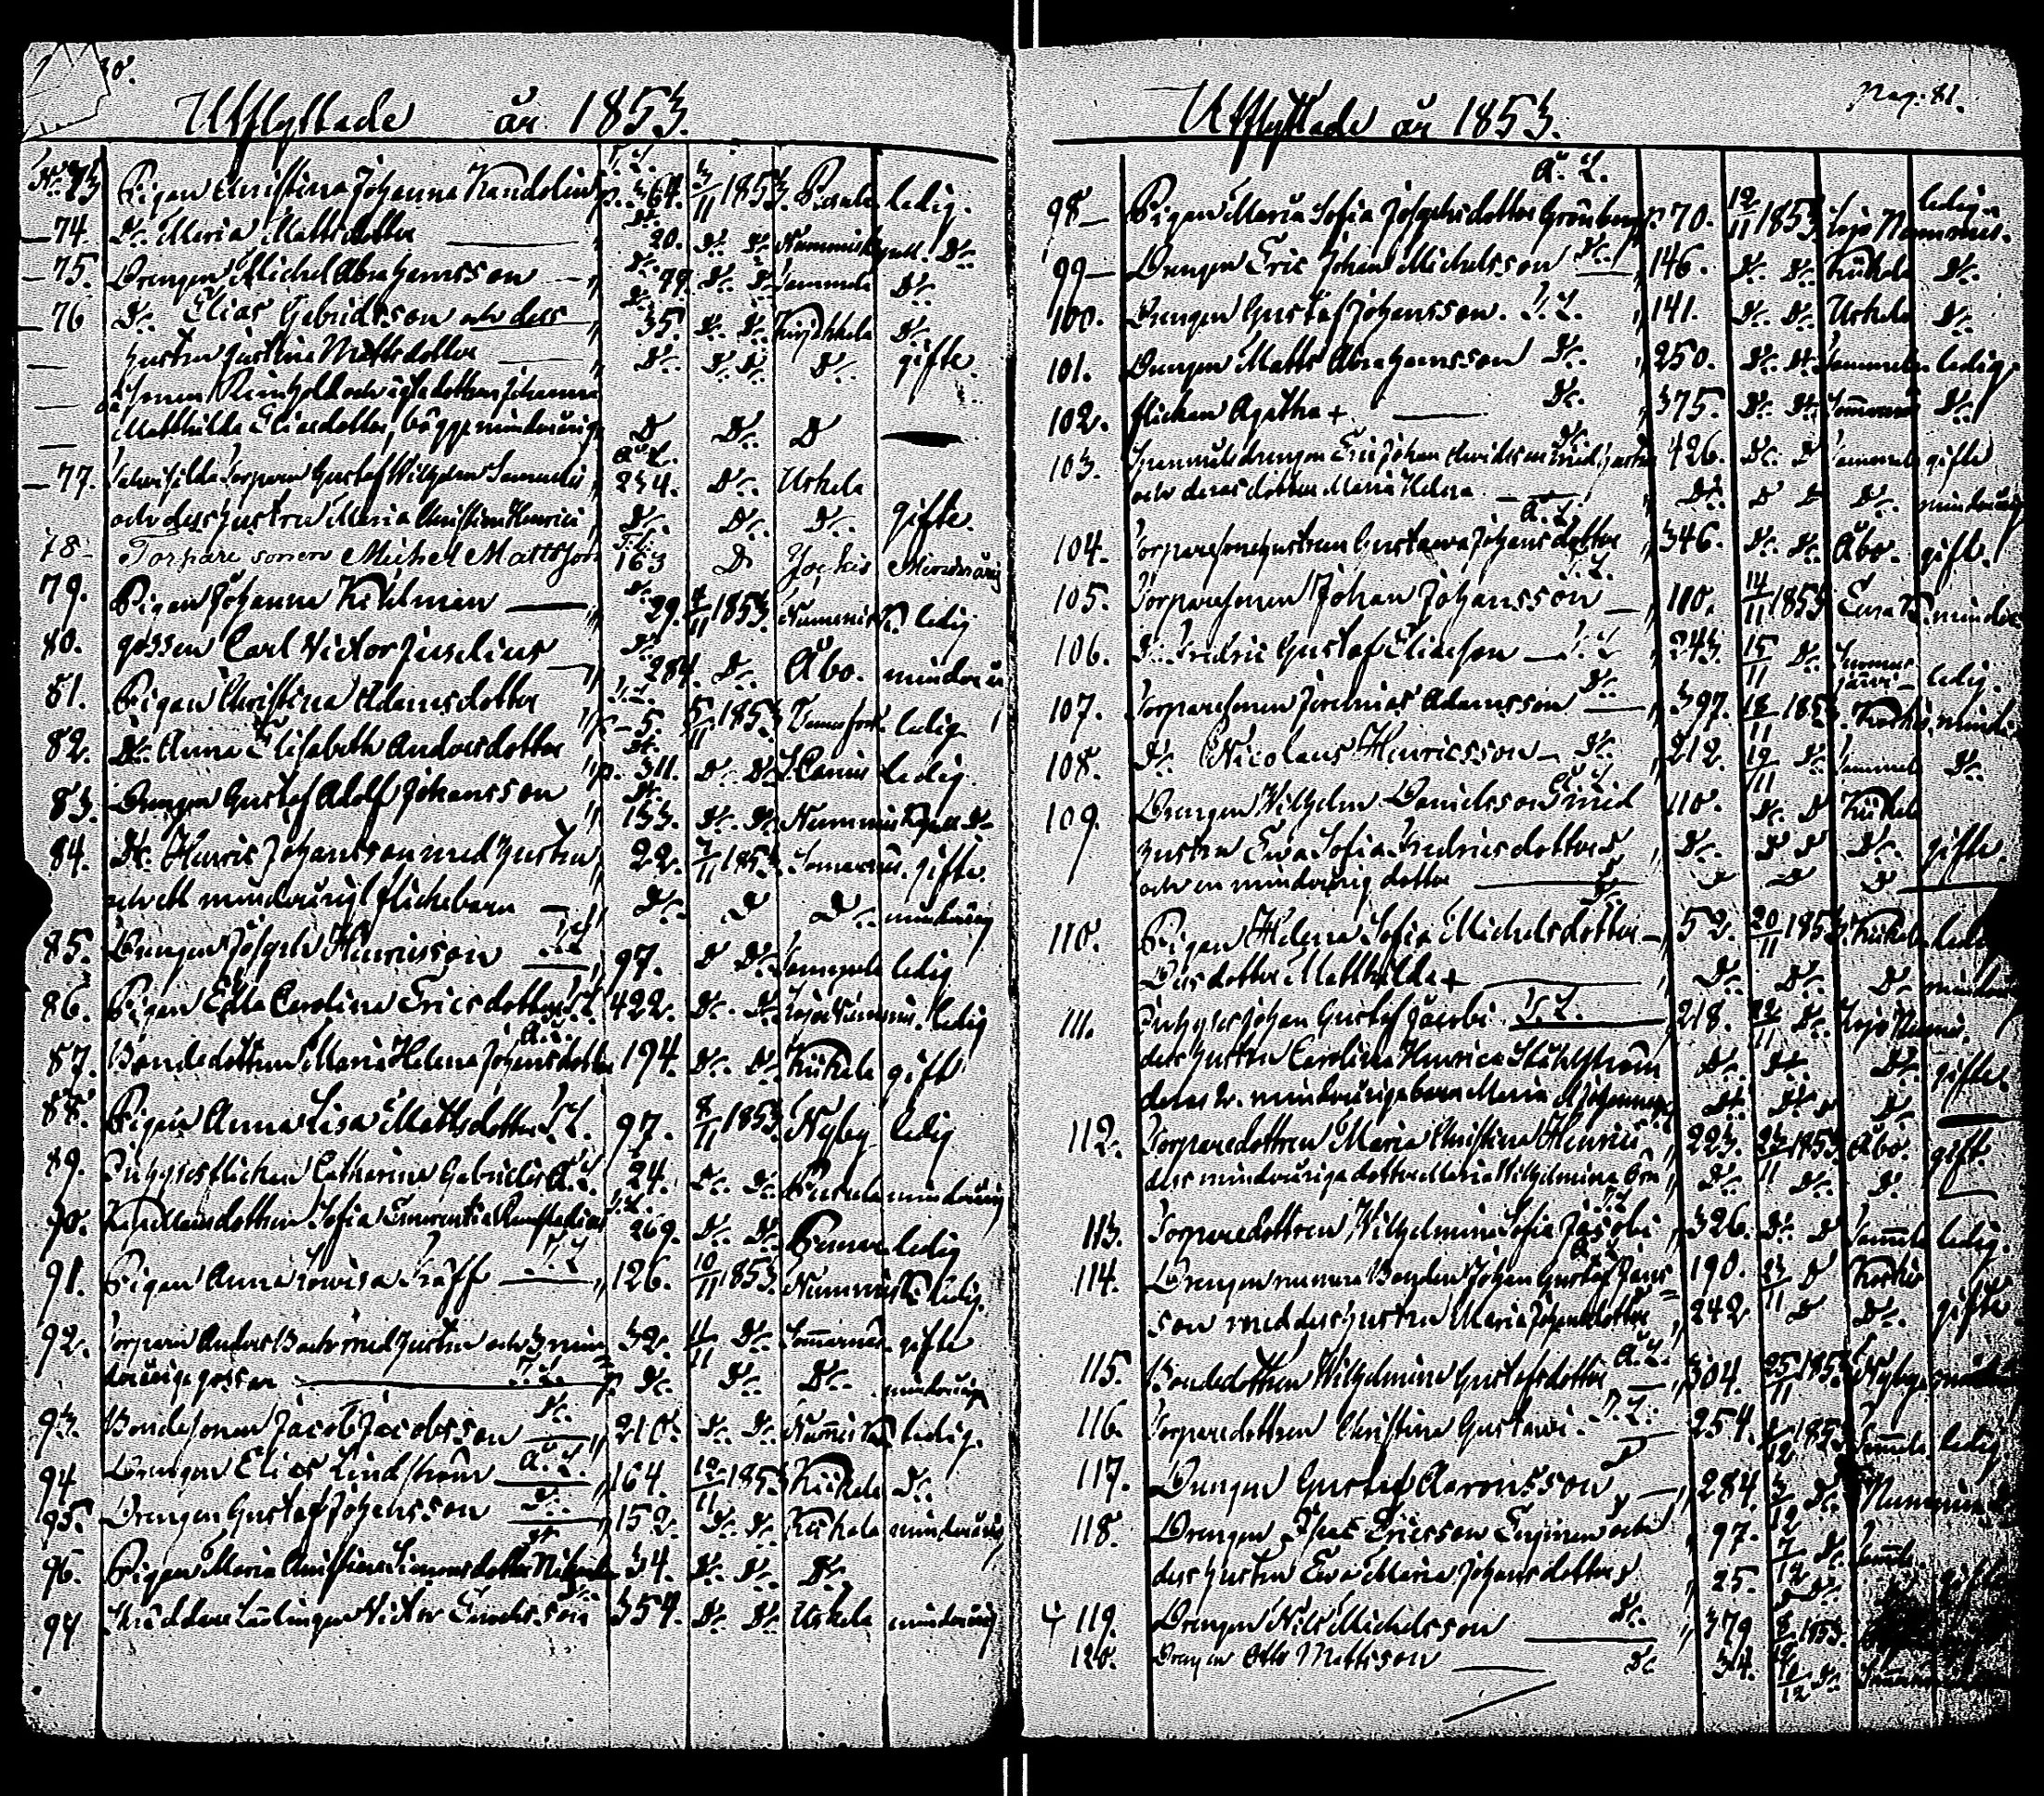 80.
Utflyttade år 1853.
T. L.
No. 73 Pigan Christina Johanna Kandolin p. 364. 3/11 1853. Pusula ledig.
74. Dr. Maria Mattsdotter " 20. Dr. Dr. Nummis Kapell. Dr.
75. Drengen Michel Abrahamsson " 79. Dr. D Sammola Dr.
76 Dr. Elias Gabrielsson och dess " 35. Dr. Dr. Dr.
hustru Justina Mattsdotter " Dr. Dr. Dr. D. gifte.
Sonen Reinhold och dottren Johanna
Mathilda Eliædotter, bägge minderårige D Dr. D
A. L.
77. Torparn Gustaf Wilhelm Samuelss " 234. Dr. Uskela
och dess hustru Maria Christina Henrici " Dr. Dr. Dr. gifte.
78 Torpare sonen Michel Mattsson T. L. 163 D Jockis Minderårig
79. Pigan Johanna Kihlman " 29. 4/11 1853. Nummis K. ledig
80. gossen Carl Victor Juselius " 284. Dr. Åbo. minderår
81. Pigan Christina Adamsdotter T. L. p - 5. 5/11 1853 ledig
82. Dr. Anna Elisabeth Andersdotter p. 311. Dr. Dr. ledig
83. Drengen Gustaf Adolf Johansson " 133. Dr. Dr. Nummis Kapell Dr
84. Dr. Henric Johansson med hustru " 22. 7/11 1853. Somernies. gifte.
och ett minderårigt flickebarn " Dr. D D. minderårig
85. Drengen Joseph Henricsson T. L. " 97. D Dr. Sammola ledig
86. Pigan Edla Carolina Ericsdotter T. L. 422. Dr. Dr. Lojo Nummis. ledig
A. L.
87. Bondedottren Maria Helena Johansdotter 194 Dr. Dr. Kiikala gift
88. Pigan Anna Lisa Mattsdotter T. L. 97. 8/11 1853. Nyby ledig
89. Inhysesflickan Catharina Gabriels A. L. 24. Dr. Dr. Pusula minderårig
90. Sofia Emerentia T. L. 269. Dr. Dr. Pemar ledig
91. Pigan Anna Lovisa Gräff T. L. " 126. 10/11 1853. Nummis K. ledig.
92. Torparn Anders Back med hustru och 3 min= " 32. 11/11 Dr. Somernies. gifte
deråriga gossar T. L. p Dr. Dr. Dr. minderårige
93. Bondesonen Jacob Jacobsson Dr. " 210. Dr. Dr. Nummis K. ledig.
94 Drengen Elias Lindström A. L. " 164. 12/11 1853 Kiikala Dr.
95. Drengen Gustaf Johansson Dr. " 152. Dr. Dr. Kiikala minderårig
96. Pigan Maria Christina Simonsdotter 34. Dr. Dr. Dr
97 Skräddare Lärlingen Victor Enochsson 354. Dr. Dr. Uskela minderårig
Utflyttade år 1853. Pag. 81.
A. L.
98 Pigan Maria Sofia Josephsdotter Grönberg p. 70. 12/11 1853 Lojo Nummis. ledig.
99 Drengen Eric Johan Michelsson Dr. " 146. Dr. Dr. Kiikala Dr.
100. Drengen Gustaf Johansson. T. L. " 141. Dr. Dr. Uskela Dr.
101. Drengen Matts Abrahamsson Dr. " 250. Dr. Dr. Sammola ledig.
102. flickan Agatha + Dr. " 375. Dr. Dr. Somernies Dr.
103. drengen Eric Johan Davidsson med hustru 426. Dr. D Sammola gifte
och deras dotter Maria Helena " Dr. D D Dr. minderårig
104. Torparesonehustrun Gustava Johansdotter A. L. " 346. Dr. Dr. Åbo. gift.
105. Torparesonen Johan Johansson T. L. " 110. 14/11 1853 Eura K. minder
106. Dr. Fredric Gustaf Eliasson T. L " 343. 15/11 Dr. ledig.
107. Torparesonen Jeremias Adamsson Dr. " 397. 18/11 1853. Koskis. minder
108. Dr. Nicolaus Henricsson Dr. " 212. 19/11 Dr. Sammola Dr.
109. Drengen Wilhelm Danielsson A. L. med 110. Dr. D Kiikala
hustru Eva Sofia Fredricsdotter " Dr. D D Dr. gifte.
och en minderårig dotter D D D
110. Pigan Helena Sofia Michelsdotter " 52. 20/11 1853. Kiikala ledig
Dess dotter Mathilda + Dr. Dr. D minder
111. Inhyses Johan Gustaf Jacobi T. L. " 218. 22/11 Dr. Lojo Nummi.
dess hustru Carolina Henrica Ståhlström Dr. Dr. Dr. gifte.
deras 2. minderåriga barn Maria & Johanna Dr. Dr. D Dr.
112. Torparedottren Maria Christina Henrici " 223. 23/11 1853. Åbo. gift.
dess minderåriga dotter Maria Wilhelmina " Dr. Dr. D.
113. Torparedottren Wilhelmina Sofia Jacobi T. L " 326. Dr. D Sammola ledig.
114. Drengen numera Bonden Johan Gustaf Jans= " 190. 23/11 D Koskis
son med dess hustru Maria Johansdotter " 242 D Dr. gifte
115. Bondedottren Wilhelmina Gustafsdotter A. L. " 304. 25/11 1853. Nyby
116. Torparedottren Christina Gustavi. T. L. 254. 1/12 1853 Sammola ledig
117. Drengen Gustaf Aaronsson D " 284. 3/12 Dr. Nummis
118. Drengen Isac Ericsson och " 97. 7/12 Dr.
dess hustru Eva Maria Johansdotter " 25. D Dr. gifte
119. Drengen Nils Michelsson Dr. " 379 8/12 1853.
120. Drengen Otto Mattsson Dr 34. 12/12 Dr.